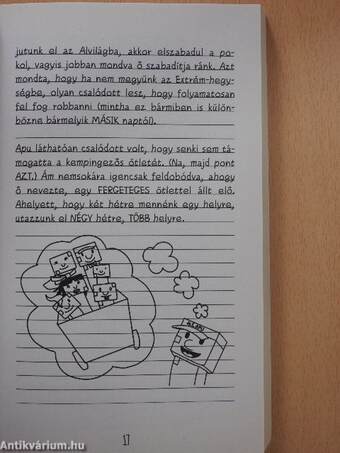 jutunk el az Alvilágba, akkor elszabadul a po-
kol, vagyis jobban mondva ő szabadítja ránk. Azt
mondta, hogy ha nem megyünk az Extrém-hegy-
ségbe, olyan csalódott lesz, hogy folyamatosan
fel fog robbanni (mintha ez bármiben is külön-
bözne bármelyik MÁSIK naptól).
Apu láthatóan csalódott volt, hogy senki sem tá-
mogatta a kempingezős ötletét. (Na, majd pont
AZT.) Ám nemsokára igencsak feldobódva, ahogy
ő nevezte, egy FERGETEGES ötlettel állt elő.
Ahelyett, hogy két hétre mennénk egy helyre,
utazzunk el NÉGY hétre, TÖBB helyre.
17
Antikvárium.hu